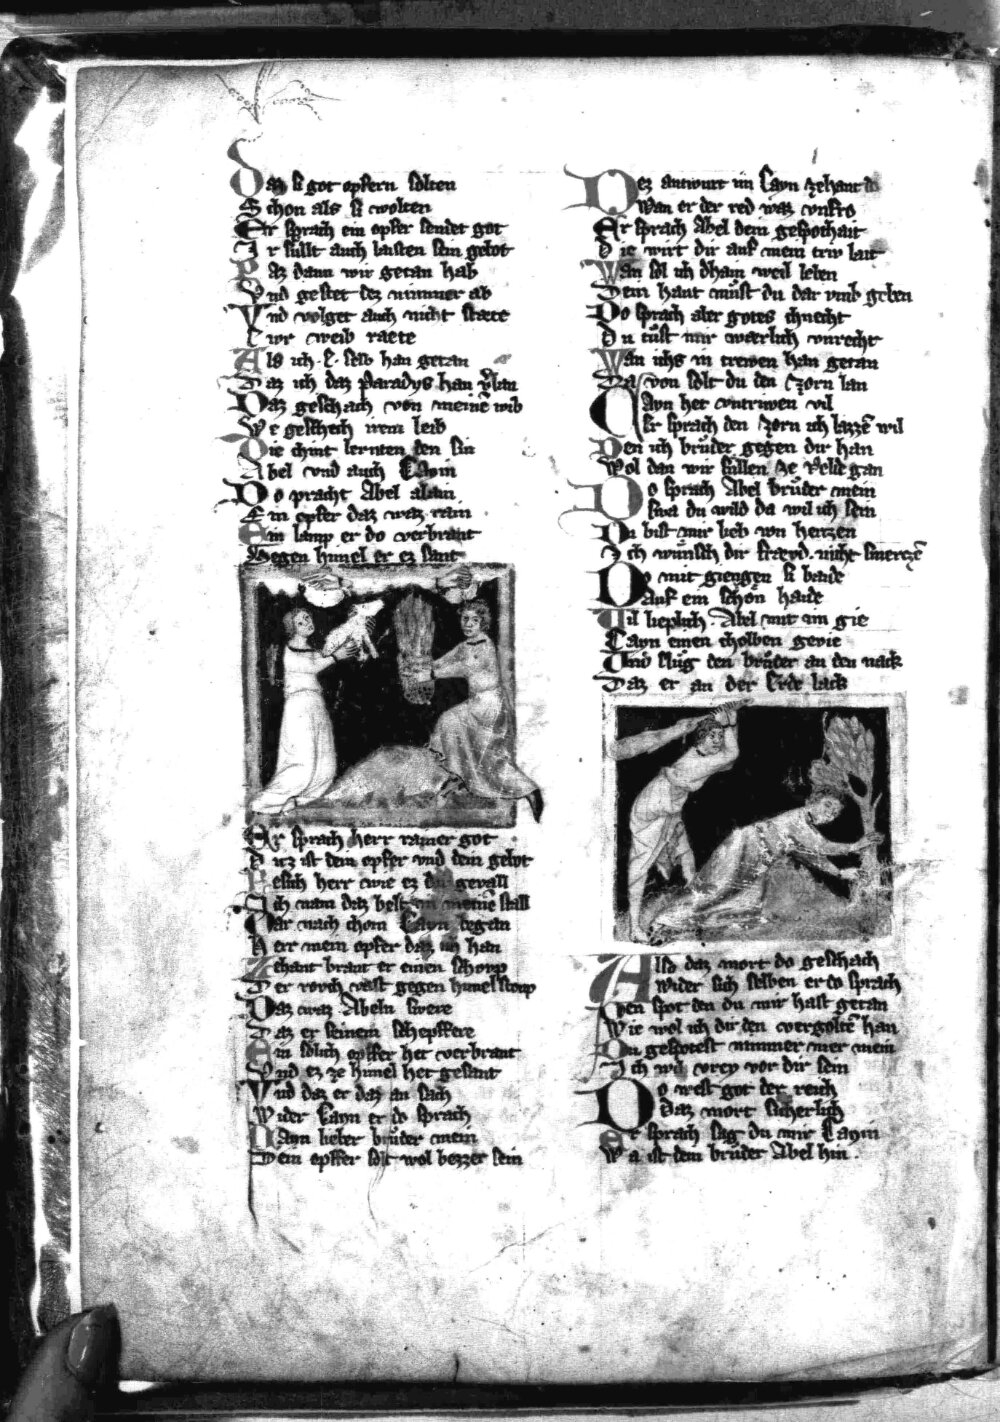 Daz si got opfern solten
Schon als si wolten
Er sprach ein opfer sendet got
Ir sullt auch laisten sein gebot
Daz dann wir getan hab
Vnd gestet dez nimmer ab
Vnd volget auch nicht stæte
Ewr weib raete
Als ich E selb han getan
Daz ich daz Paradys han vlan
Daz geschach von meinē wib
We geschech irem leib
Die chint lernten den sin
Abel vnd auch Cayin
Do pracht Abel alain
Ein opfer daz waz rain
Ein lamp er do verbrant
Gegen himel er ez sant
Er sprach herr rainer got
Ditz ist dein opfer vnd dein gebot
Besich herr wie ez dir gevall
Ich nam daz best in meinē stall
Dar nach chom Cayn began
Herr mein opfer daz ich han
Zehant brant er einen schoup
Der rovch vast gegen himel stoup
Daz waz Abeln swere
Daz er seinem schepffere
Ein sölich opffer het verbrant
Vnd ez ze himel het gesant
Vnd daz er daz an sach
Wider Cayn er do sprach
Cayn lieber brůder mein
Dein opffer solt wol bezzer sein
Dez antwurt im Cayn zehant do
Wan er der red waz vnfro
Er sprach Abel dein gespothait
Die wirt dir auf mein triw lait
Wan sol ich dhain weil leben
Dein haut můst du dar vmb geben
Do sprach aber gotes chnecht
Du tůst mir wærlich vnrecht
Wan ichs in trewen han getan
Da von solt du den zorn lan
Cayn het vntriwen vil
Er sprach den zorn ich lazzē wil
Den ich brůder gegen dir han
Wol dan wir sullen ze velde gan
Do sprach Abel brůder mein
Swa du wild da wil ich sein
Du bist mir lieb von hertzen
Ich wünsch dir fræwd nicht smerczē
Do mit giengen si baide
Auf ein schön haide
Vil lieplich Abel mit im gie
Cayn einen cholben gevie
Vnd slůg den brůder an den nack
Daz er an der Erde lack
Also daz mort do geschach
Wider sich selben er do sprach
Den spot den du mir hast getan
Wie wol ich dir den vergoltē han
Du gespotest nimmer mer mein
Ich wil vrey vor dir sein
Do west got der reich
Daz mort sicherlich
Er sprach sag du mir Cayin
Wa ist dein brůder Abel hin.